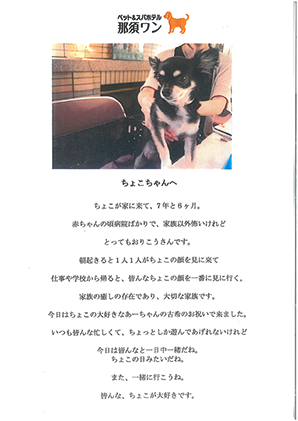 ペット&スパホテル
那須ワン
ちょこちゃんへ
ちょこが家に来て、7年と6ヶ月。
赤ちゃんの頃病院ばかりで、家族以外怖いけれど
とってもおりこうさんです。
朝起きると1人1人がちょこの顔を見に来て
仕事や学校から帰ると、皆んなちょこの顔を一番に見に行く。
家族の癒しの存在であり、大切な家族です。
今日はちょこの大好きなあーちゃんの古希のお祝いで来ました。
いつも皆んな忙しくて、ちょっとしか遊んであげれないけれど
今日は皆んなと一日中一緒だね。
ちょこの日みたいだね。
また、一緒に行こうね。
皆んな、ちょこが大好きです。